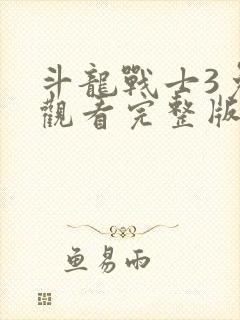 斗龍戰士3
觀看完整版
鱼易雨